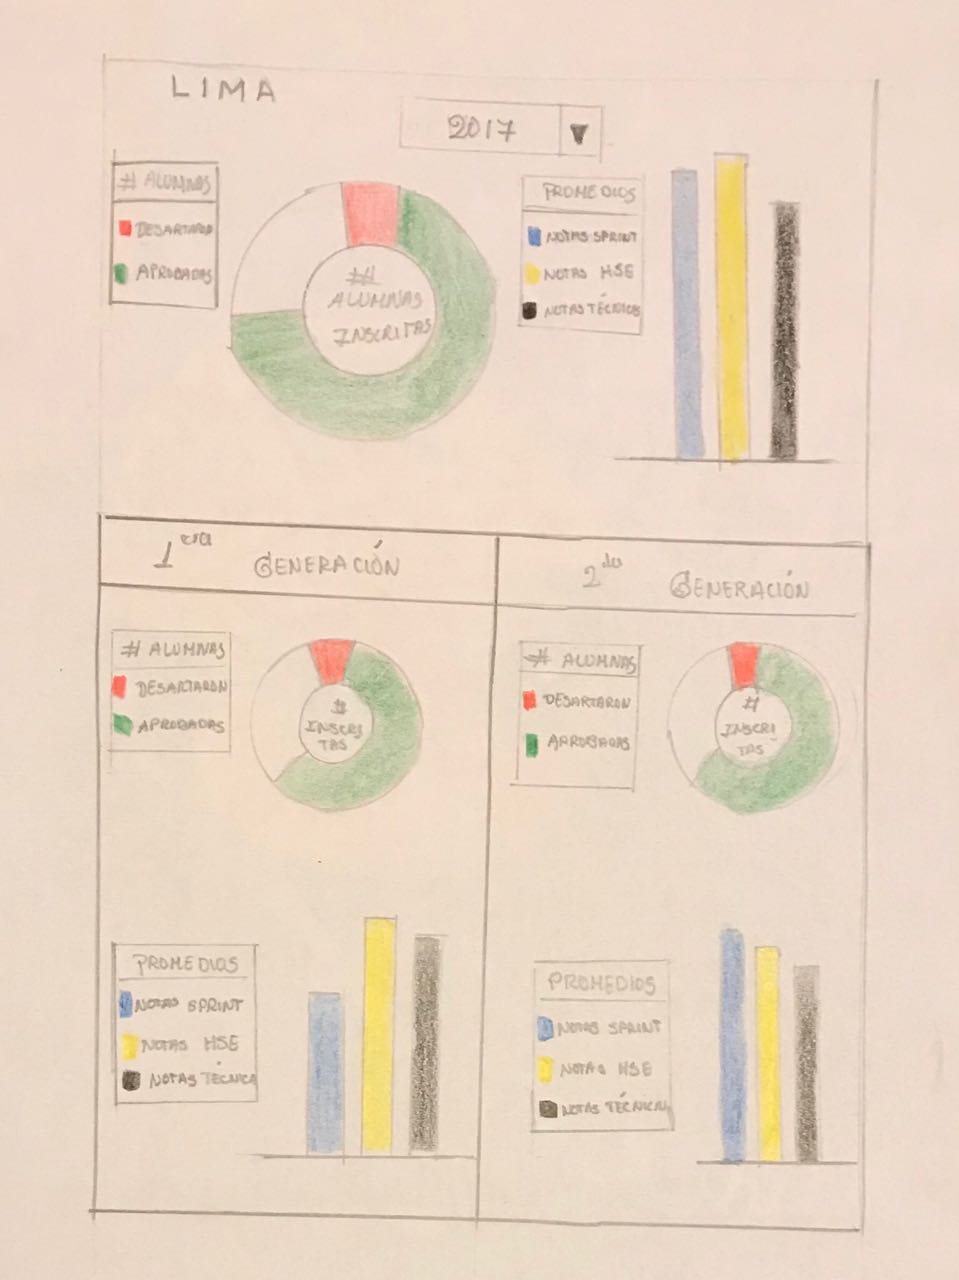 LIMA
2017
# ALUMNAS
DESARTARON
APROBADAS
#
ALUMNAS
INSCRITAS
PROMEDIOS
NOTAS SPRINT
NOTAS HSE
NOTAS TÉCNICAS
1era GENERACIÓN
# ALUMNAS
DESARTARON
APROBADAS
#
INSCRI
TAS
PROMEDIOS
NOTAS SPRINT
NOTAS HSE
NOTAS TÉCNICA
2da GENERACIÓN
# ALUMNAS
DESARTARON
APROBADAS
#
INSCRI-
TAS
PROMEDIOS
NOTAS SPRINT
NOTAS HSE
NOTAS TÉCNICAS